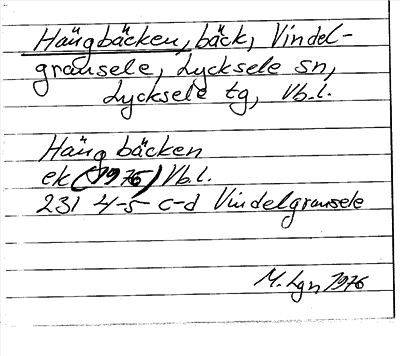 Hängbäcken, bäck, Vindel-
gransele, Lycksele sn,
Lycksele tg, Vb.l.
Häng bäcken
ek (1976) Vb.l.
231 4-5 c-d Vindelgransele
M. Lgn 1976